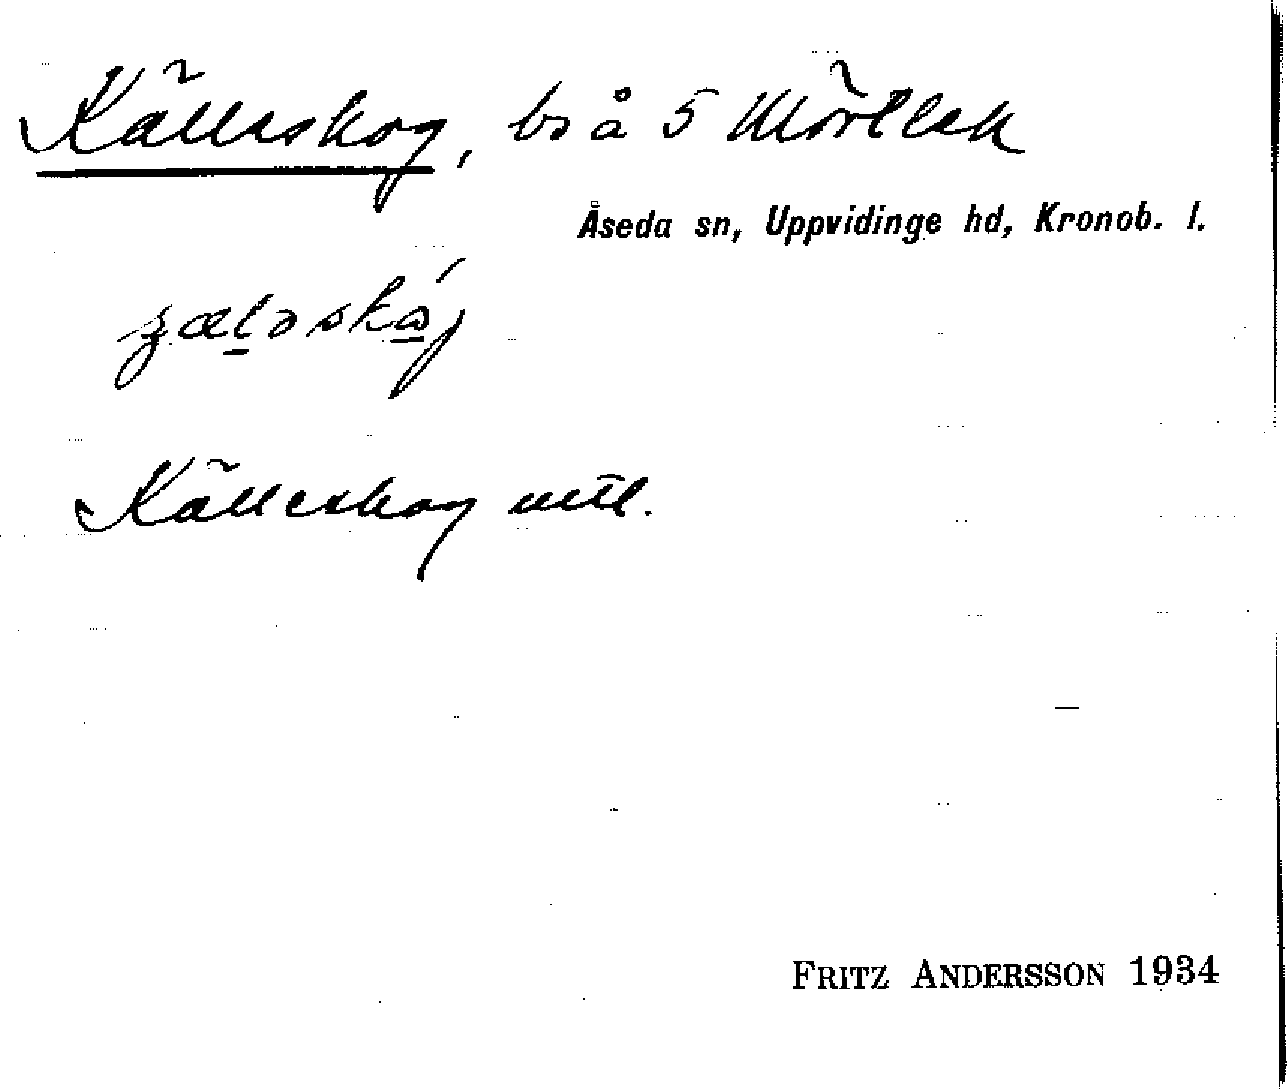 Källeskog, bs å 5 Mörtlek
Åseda sn, Uppvidinge hd, Kronob. l.
Källeskog mtl.
FRITZ ANDERSSON 1934